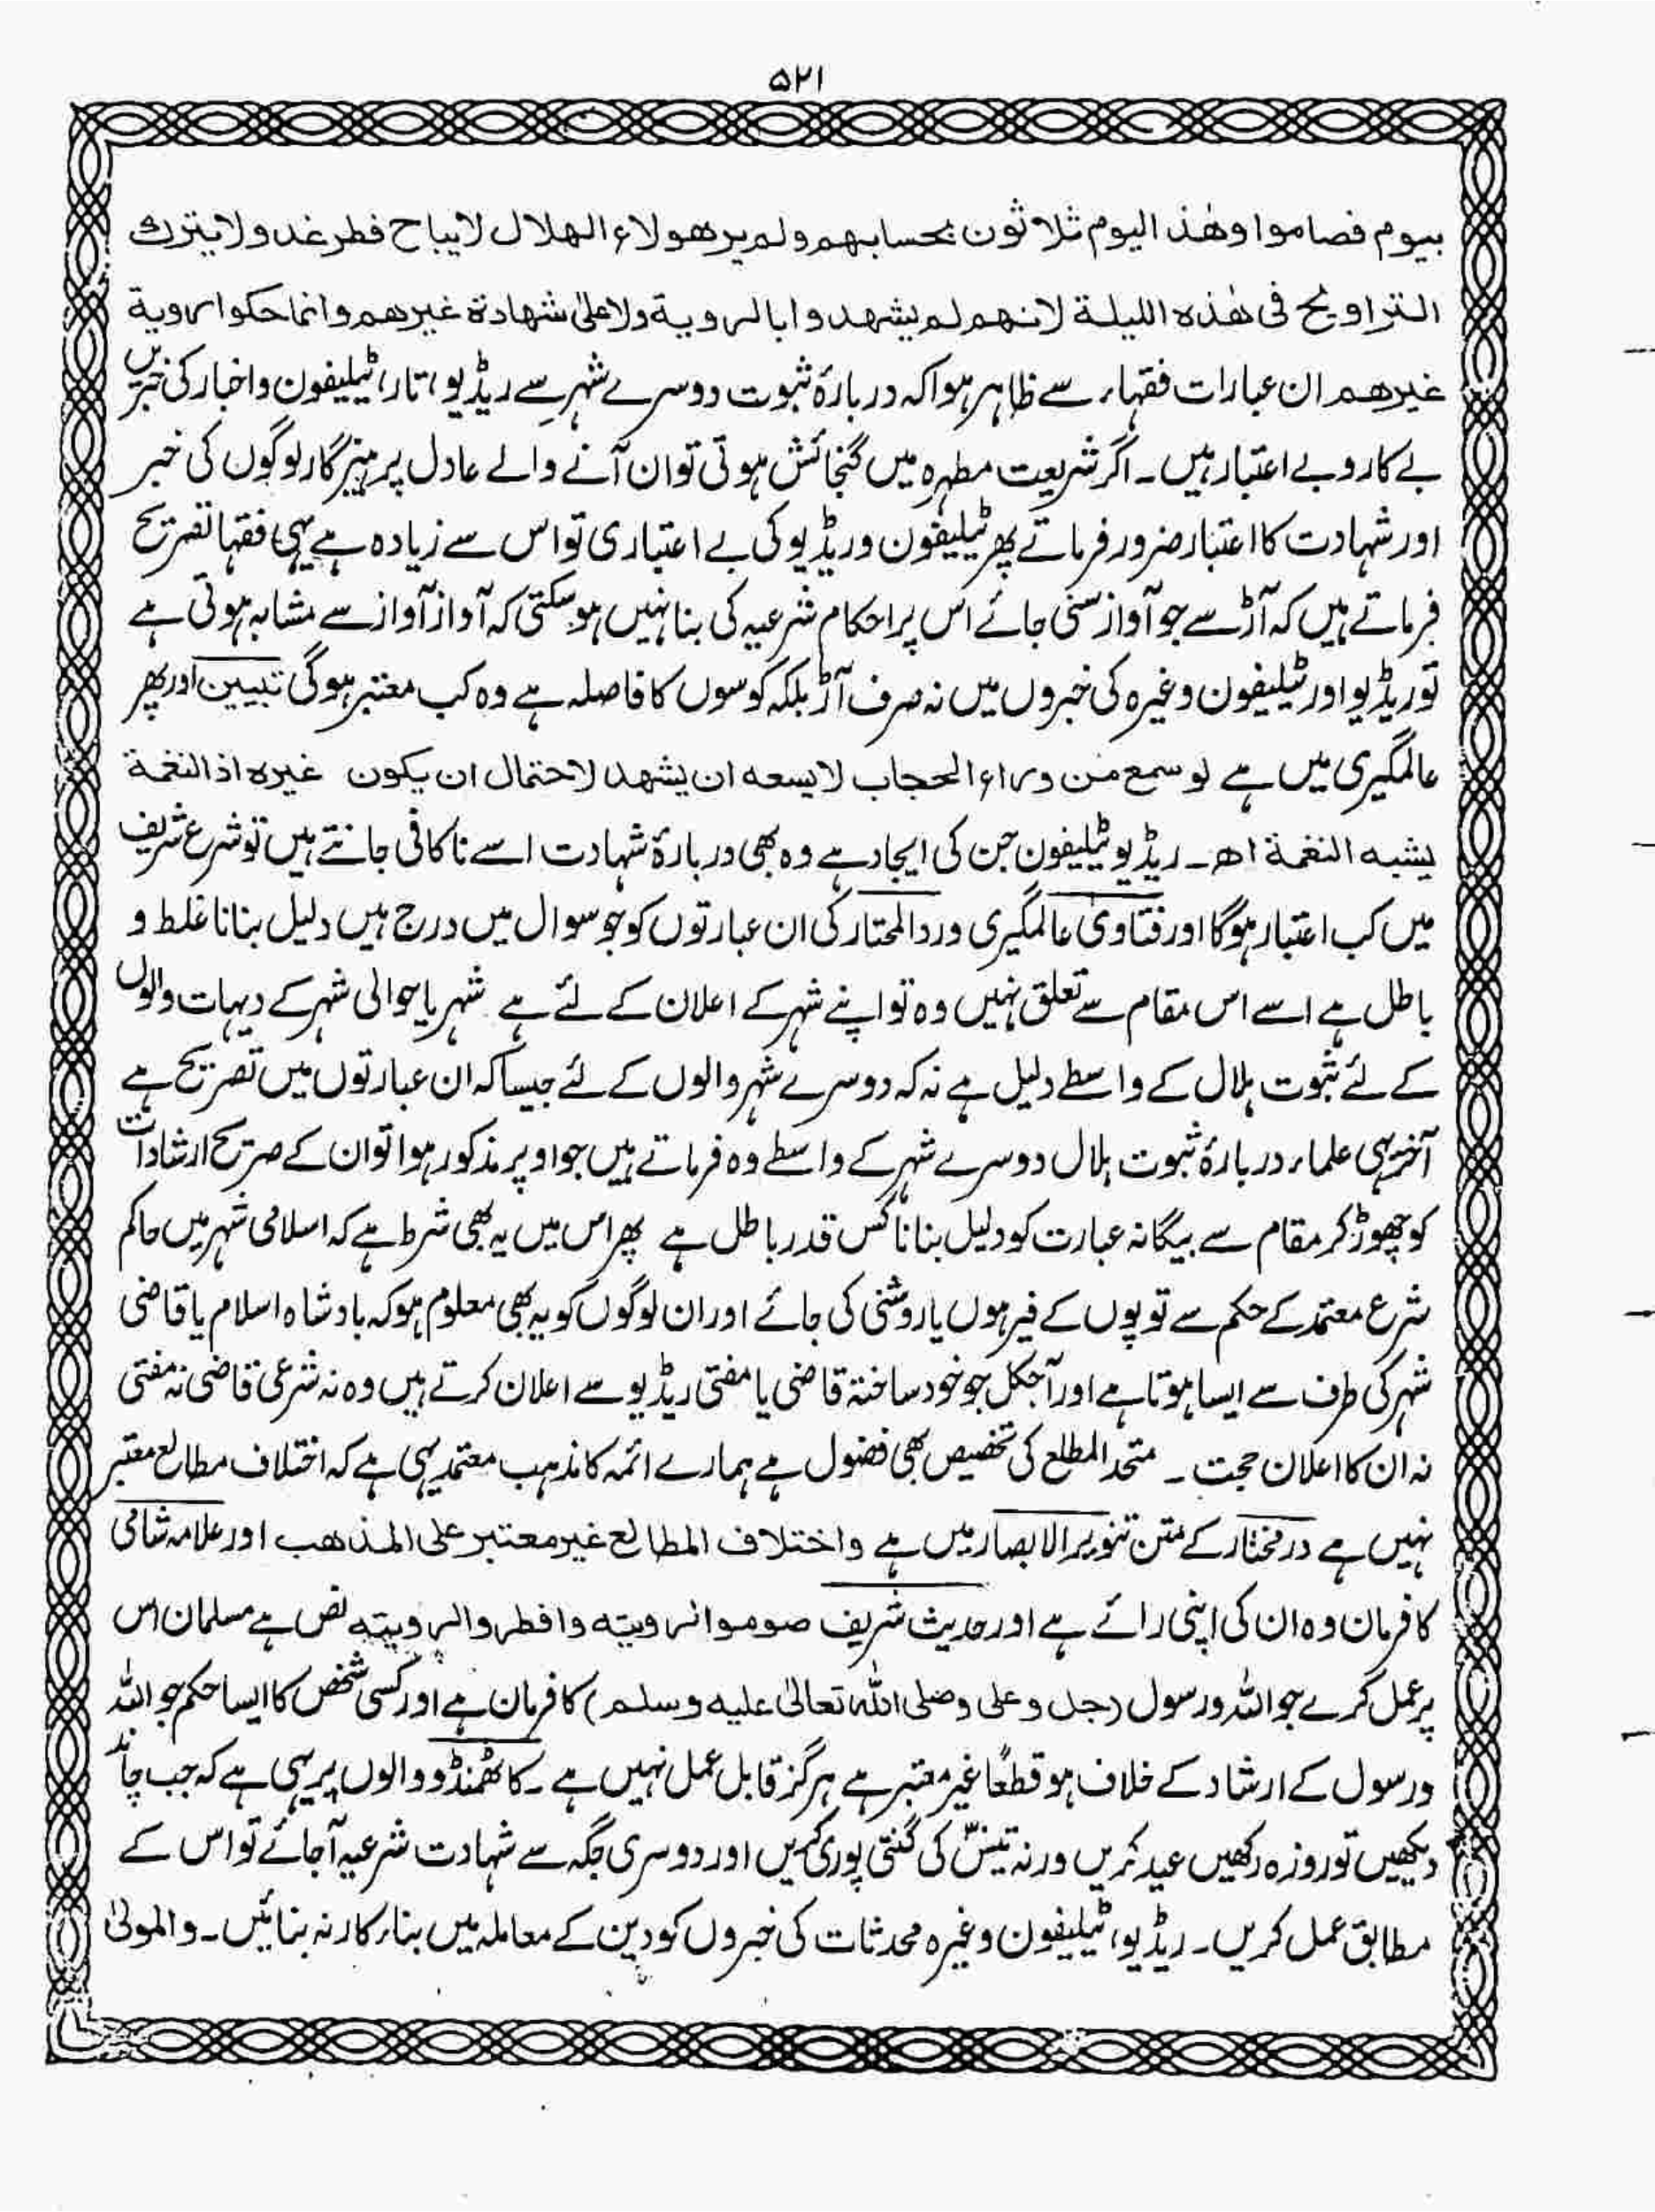 ۵۲۱
بیوم فصاموا وھٰذ الیوم ثلاثون بحسابھم ولم یر ھولاء الھلال لایباح فطر غد ولا یترك
التراویح فی ھٰذہ اللیلۃ لانھم لم یشھدوا بالرویۃ ولا علیٰ شھادۃ غیرھم وانما حکوا رویۃ
غیرھم ان عبارات فقہاء سے ظاہر ہوا کہ دربارۂ ثبوت دوسرے شہر سے ریڈیو، تار، ٹیلیفون واخبار کی خبریں
بے کار وبے اعتبار ہیں۔ اگر شریعت مطہرہ میں گنجائش ہوتی تو ان آنے والے عادل پرہیزگار لوگوں کی خبر
اور شہادت کا اعتبار ضرور فرماتے پھر ٹیلیفون وریڈیو کی بے اعتباری تو اس سے زیادہ ہے یہی فقہا تصریح
فرماتے ہیں کہ آڑ سے جو آواز سنی جائے اس پر احکام شرعیہ کی بنا نہیں ہوسکتی کہ آواز آواز سے مشابہ ہوتی ہے
تو ریڈیو اور ٹیلیفون وغیرہ کی خبروں میں نہ صرف آڑ بلکہ کوسوں کا فاصلہ ہے وہ کب معتبر ہوگی تبیین اور پھر
عالمگیری میں ہے لو سمع من وراء الحجاب لا یسعہ ان یشھد لاحتمال ان یکون غیرہ اذ النغمۃ
یشبہ النغمۃ اھ۔ ریڈیو ٹیلیفون جن کی ایجاد ہے وہ بھی دربارۂ شہادت اسے ناکافی جانتے ہیں تو شرع شریف
میں کب اعتبار ہوگا اور فتاویٰ عالمگیری وردالمحتار کی ان عبارتوں کو جو سوال میں درج ہیں دلیل بنانا غلط و
باطل ہے اسے اس مقام سے تعلق نہیں وہ تو اپنے شہر کے اعلان کے لئے ہے شہر یا حوالی شہر کے دیہات والوں
کے لئے ثبوت ہلال کے واسطے دلیل ہے نہ کہ دوسرے شہر والوں کے لئے جیسا کہ ان عبارتوں میں تصریح ہے
آخر یہی علماء دربارۂ ثبوت ہلال دوسرے شہر کے واسطے وہ فرماتے ہیں جو اوپر مذکور ہوا تو ان کے صریح ارشادات
کو چھوڑ کر مقام سے بیگانہ عبارت کو دلیل بنانا کس قدر باطل ہے پھر اس میں یہ بھی شرط ہے کہ اسلامی شہر میں حاکم
شرع معتمد کے حکم سے توپوں کے فیر ہوں یا روشنی کی جائے اور ان لوگوں کو یہ بھی معلوم ہو کہ بادشاہ اسلام یا قاضی
شہر کی طرف سے ایسا ہوتا ہے اور آجکل جو خود ساختہ قاضی یا مفتی ریڈیو سے اعلان کرتے ہیں وہ نہ شرعی قاضی نہ مفتی
نہ ان کا اعلان حجت۔ متحد المطلع کی تخصیص بھی فضول ہے ہمارے ائمہ کا مذہب معتمد یہی ہے کہ اختلاف مطالع معتبر
نہیں ہے درمختار کے متن تنویر الابصار میں ہے واختلاف المطالع غیر معتبر علی المذھب اور علامہ شامی
کا فرمان وہ ان کی اپنی رائے ہے اور حدیث شریف صوموا لرویتہ وافطروا لرویتہ نص ہے مسلمان اس
پر عمل کرے جو اللہ ورسول (جل وعلی وصلی اللہ تعالیٰ علیہ وسلم) کا فرمان ہے اور کسی شخص کا ایسا حکم جو اللہ
ورسول کے ارشاد کے خلاف ہو قطعًا غیر معتبر ہے ہرگز قابل عمل نہیں ہے۔ کاٹھمنڈو والوں پر یہی ہے کہ جب چاند
دیکھیں تو روزہ رکھیں عید کریں ورنہ تیس کی گنتی پوری کریں اور دوسری جگہ سے شہادت شرعیہ آجائے تو اس کے
مطابق عمل کریں۔ ریڈیو، ٹیلیفون وغیرہ محدثات کی خبروں کو دین کے معاملہ میں بناء کار نہ بنائیں۔ والمولیٰ